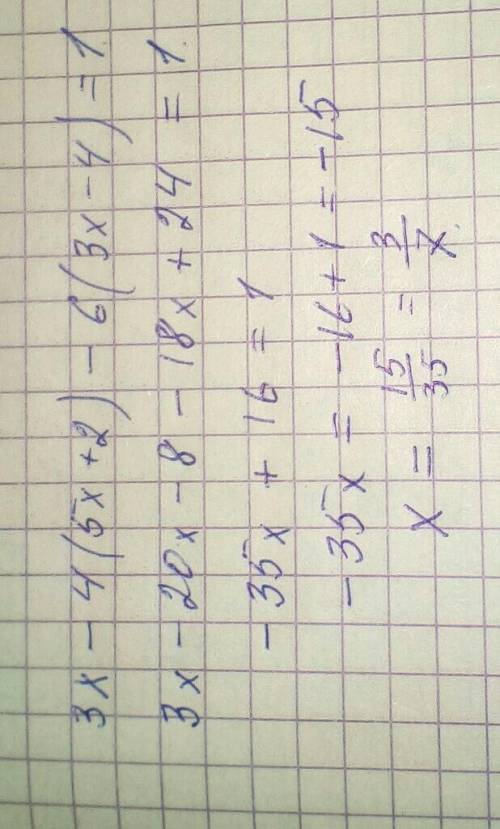 3x - 4(5x+2) - 6(3x-4) = 1
3x - 20x - 8 - 18x + 24 = 1
-35x + 16 = 1
-35x = -16 + 1 = -15
x = 15/35 = 3/7.